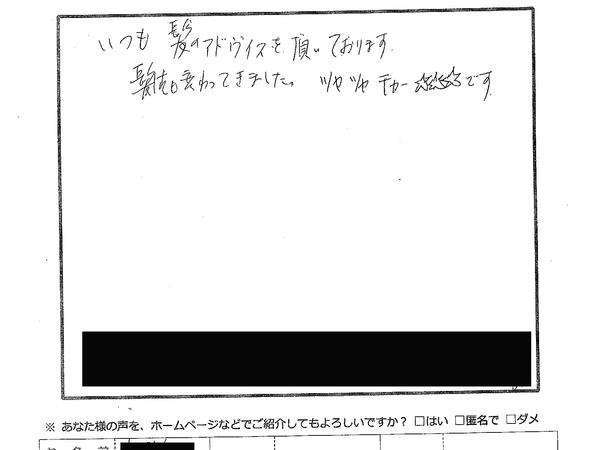 いつも髪のアドヴィスを頂いております。
髪も変わってきました。ツヤツヤ テカー☆☆☆です
※ あなた様の声を、ホームページなどでご紹介してもよろしいですか? □はい □匿名で □ダメ